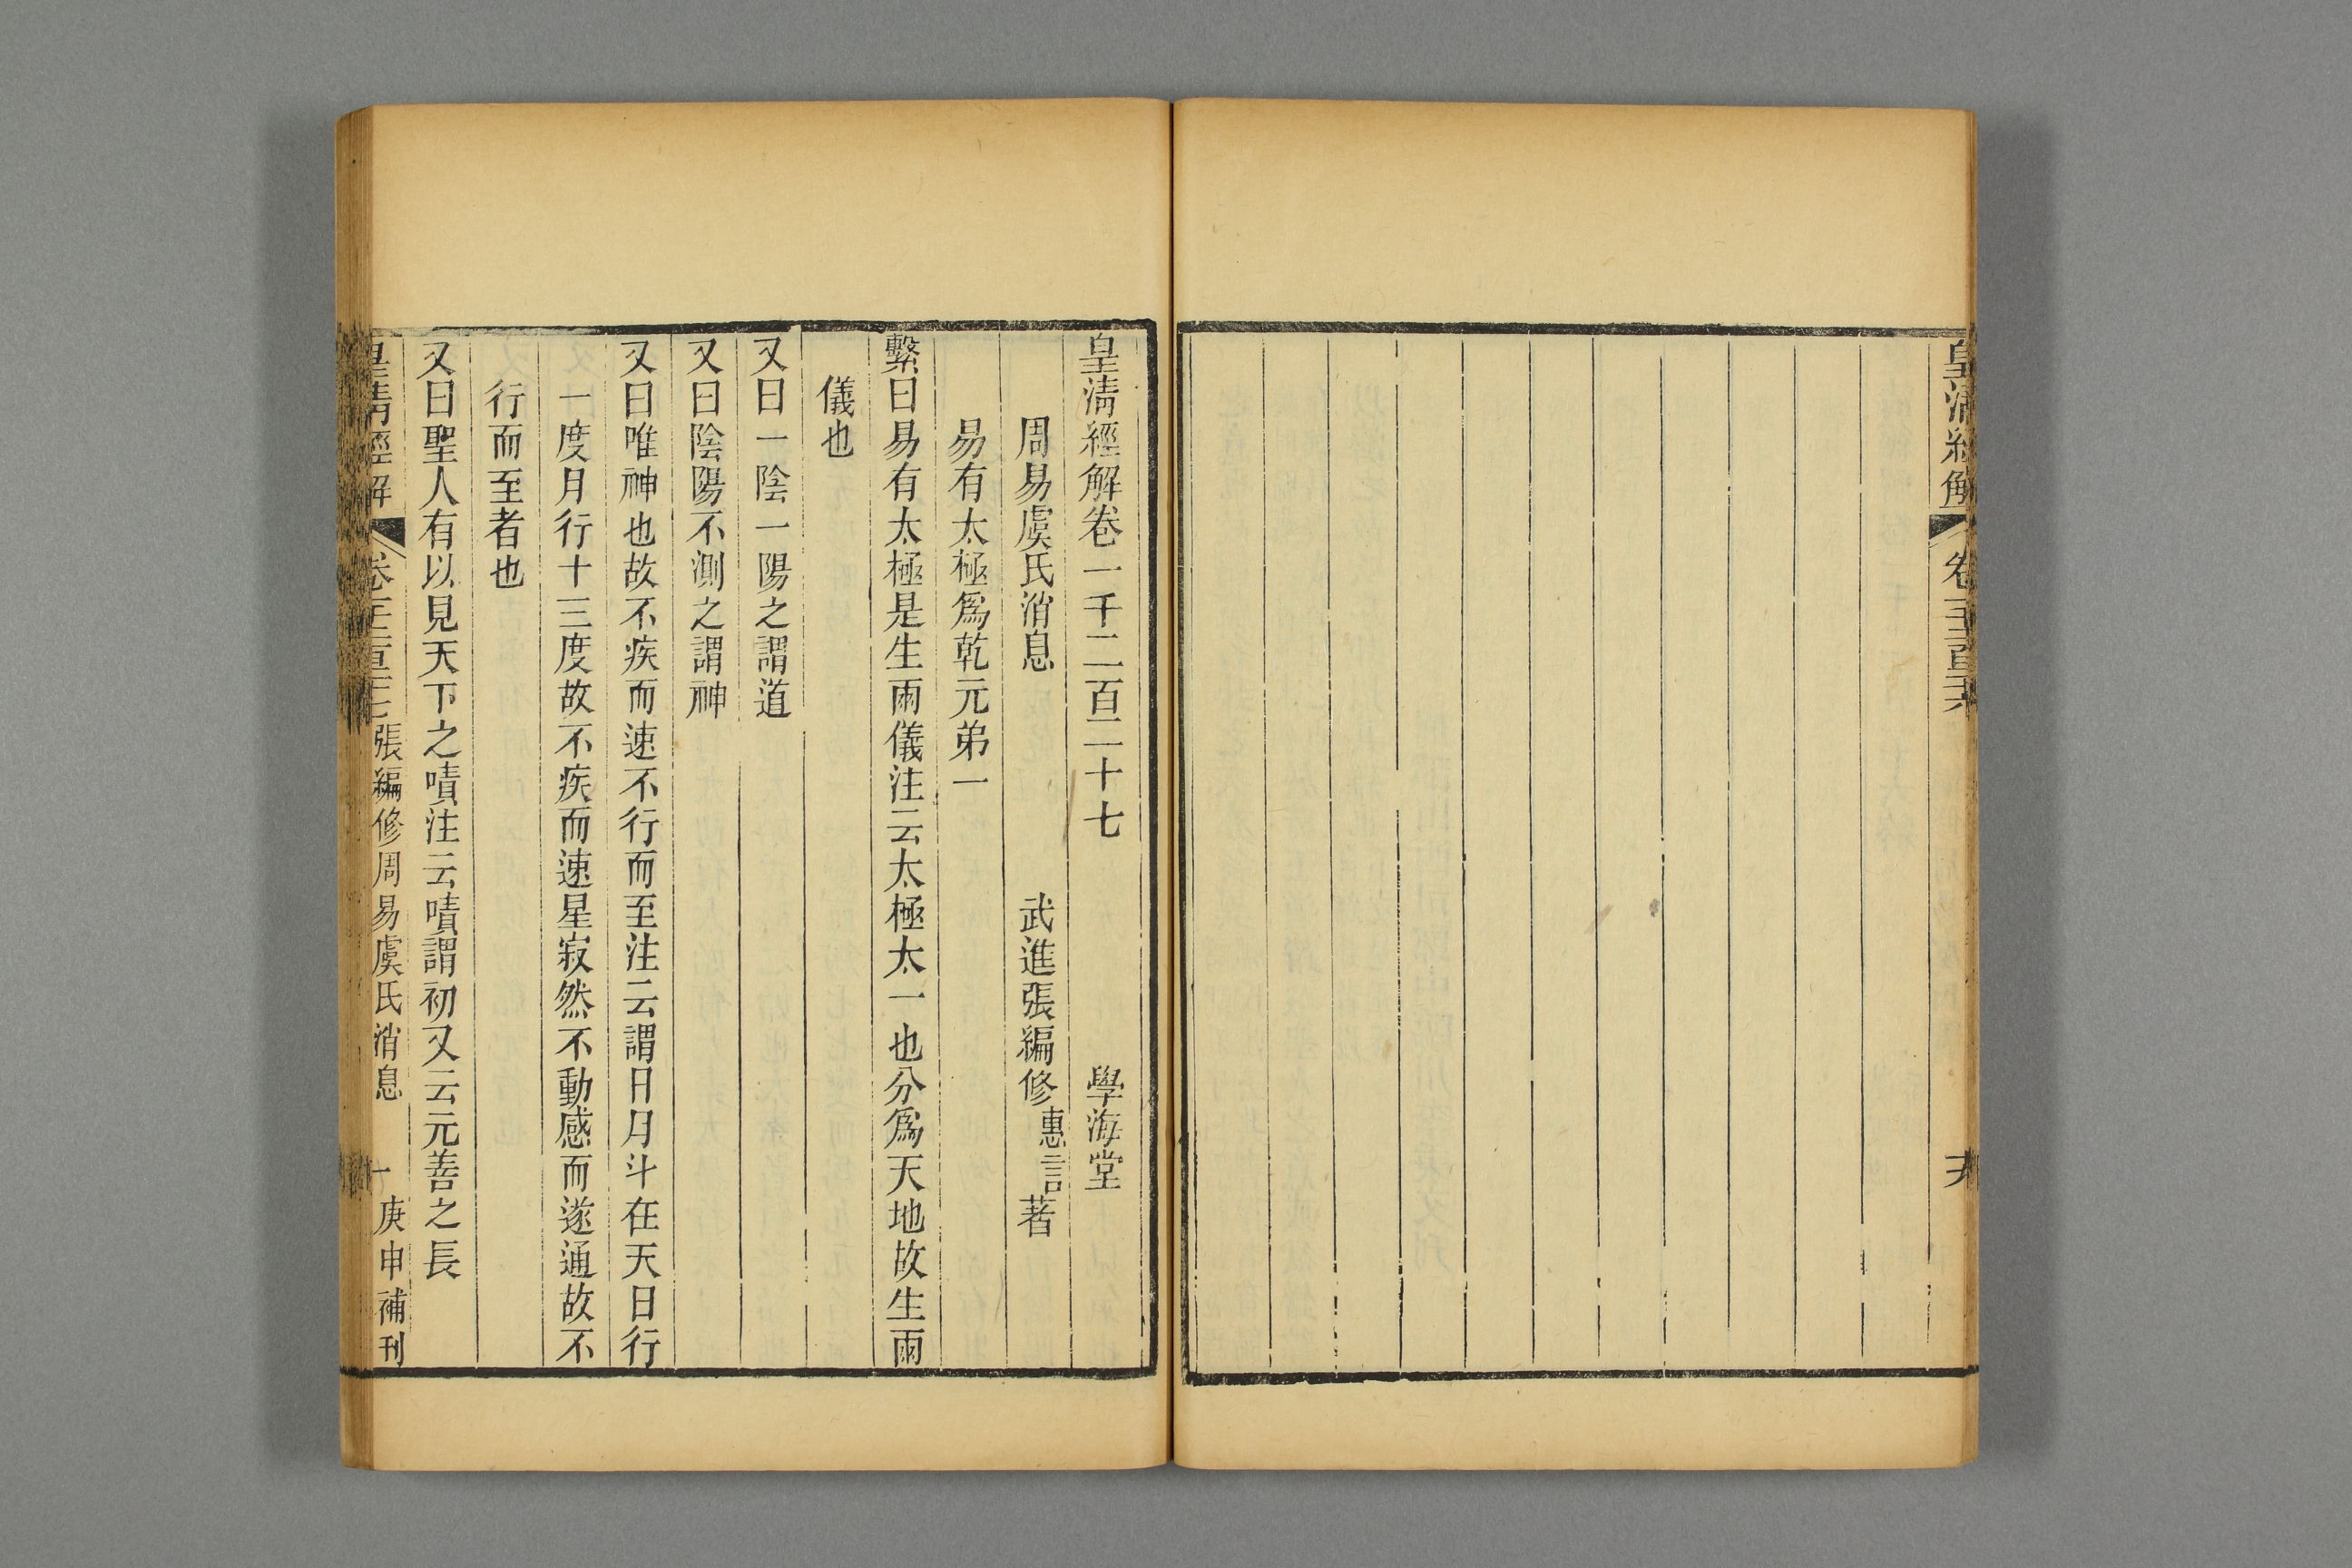 皇清經解
卷一千二百二十六
六
皇清經解卷一千二百二十七 學海堂
周易虞氏消息 武進張編修惠言著
易有太極爲乾元弟一
繫曰易有太極是生兩儀注云太極太一也分爲天地故生兩
儀也
又曰一陰一陽之謂道
又曰陰陽不測之謂神
又曰唯神也故不疾而速不行而至注云謂日月斗在天日行
一度月行十三度故不疾而速星寂然不動感而遂通故不
行而至者也
又曰聖人有以見天下之嘖注云嘖謂初又云元善之長
皇清經解 卷一千二百二十七張編修周易虞氏消息 一 庚申補刊